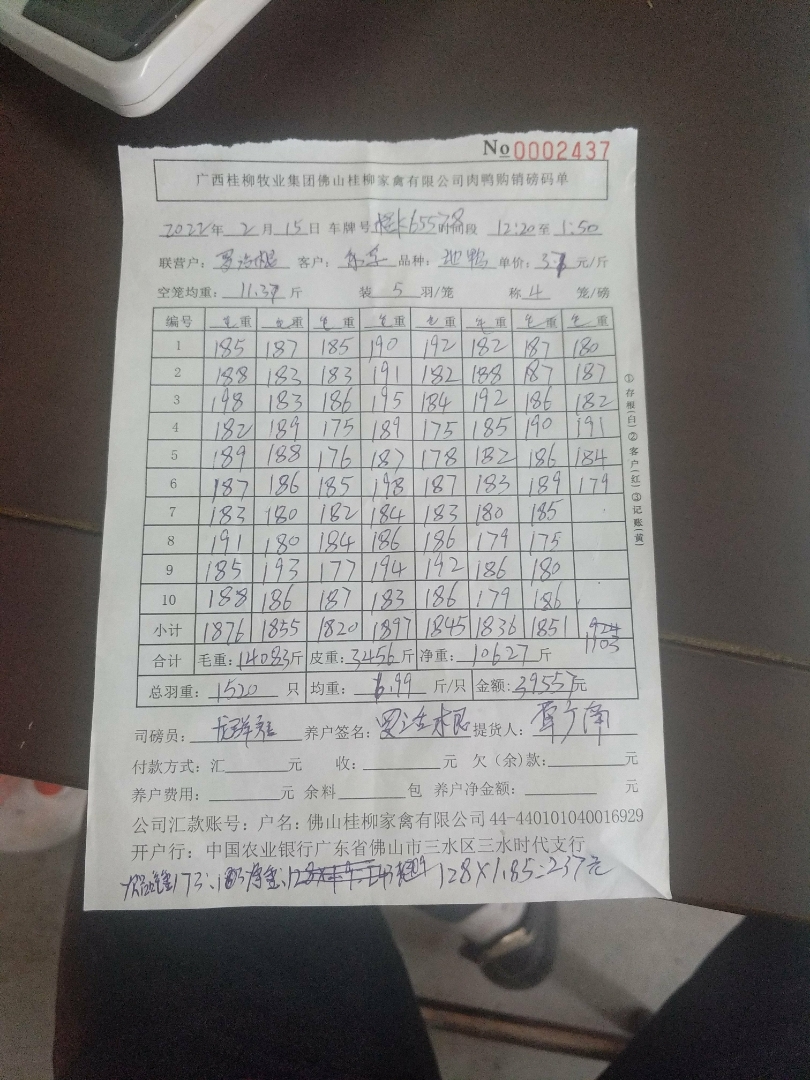 No 0002437
广西桂柳牧业集团佛山桂柳家禽有限公司肉鸭购销磅码单
2022年 2月 15日 车牌号 65578 时间段 12:20至 1:50
联营户: 客户: 品种: 鸭 单价: 元/斤
空笼均重: 11.37 斤 装 5 羽/笼 称 4 笼/磅
编号 毛重 毛重 毛重 毛重 毛重 毛重 毛重 毛重
1 185 187 185 190 192 182 187 180
2 188 183 183 191 182 188 187 187
3 198 183 186 195 184 192 186 182
4 182 189 175 189 175 185 190 191
5 189 188 176 187 178 182 186 184
6 187 186 185 198 187 183 189 179
7 183 180 182 184 183 180 185
8 191 180 184 186 186 179 175
9 185 193 177 194 192 186 180
10 188 186 187 183 186 179 186
小计 1876 1855 1820 1897 1845 1836 1851 1103
合计 毛重: 14083斤 皮重: 3456斤 净重: 10627斤
总羽重: 1520 只 均重: 6.99 斤/只 金额: 39557元
司磅员: 养户签名: 提货人:
付款方式: 汇 元 收: 元 欠(余)款: 元
养户费用: 元 余料 包 养户净金额: 元
公司汇款账号: 户名: 佛山桂柳家禽有限公司 44-440101040016929
开户行: 中国农业银行广东省佛山市三水区三水时代支行
128×1.85=237元
①存根(白)②客户(红)③记账(黄)